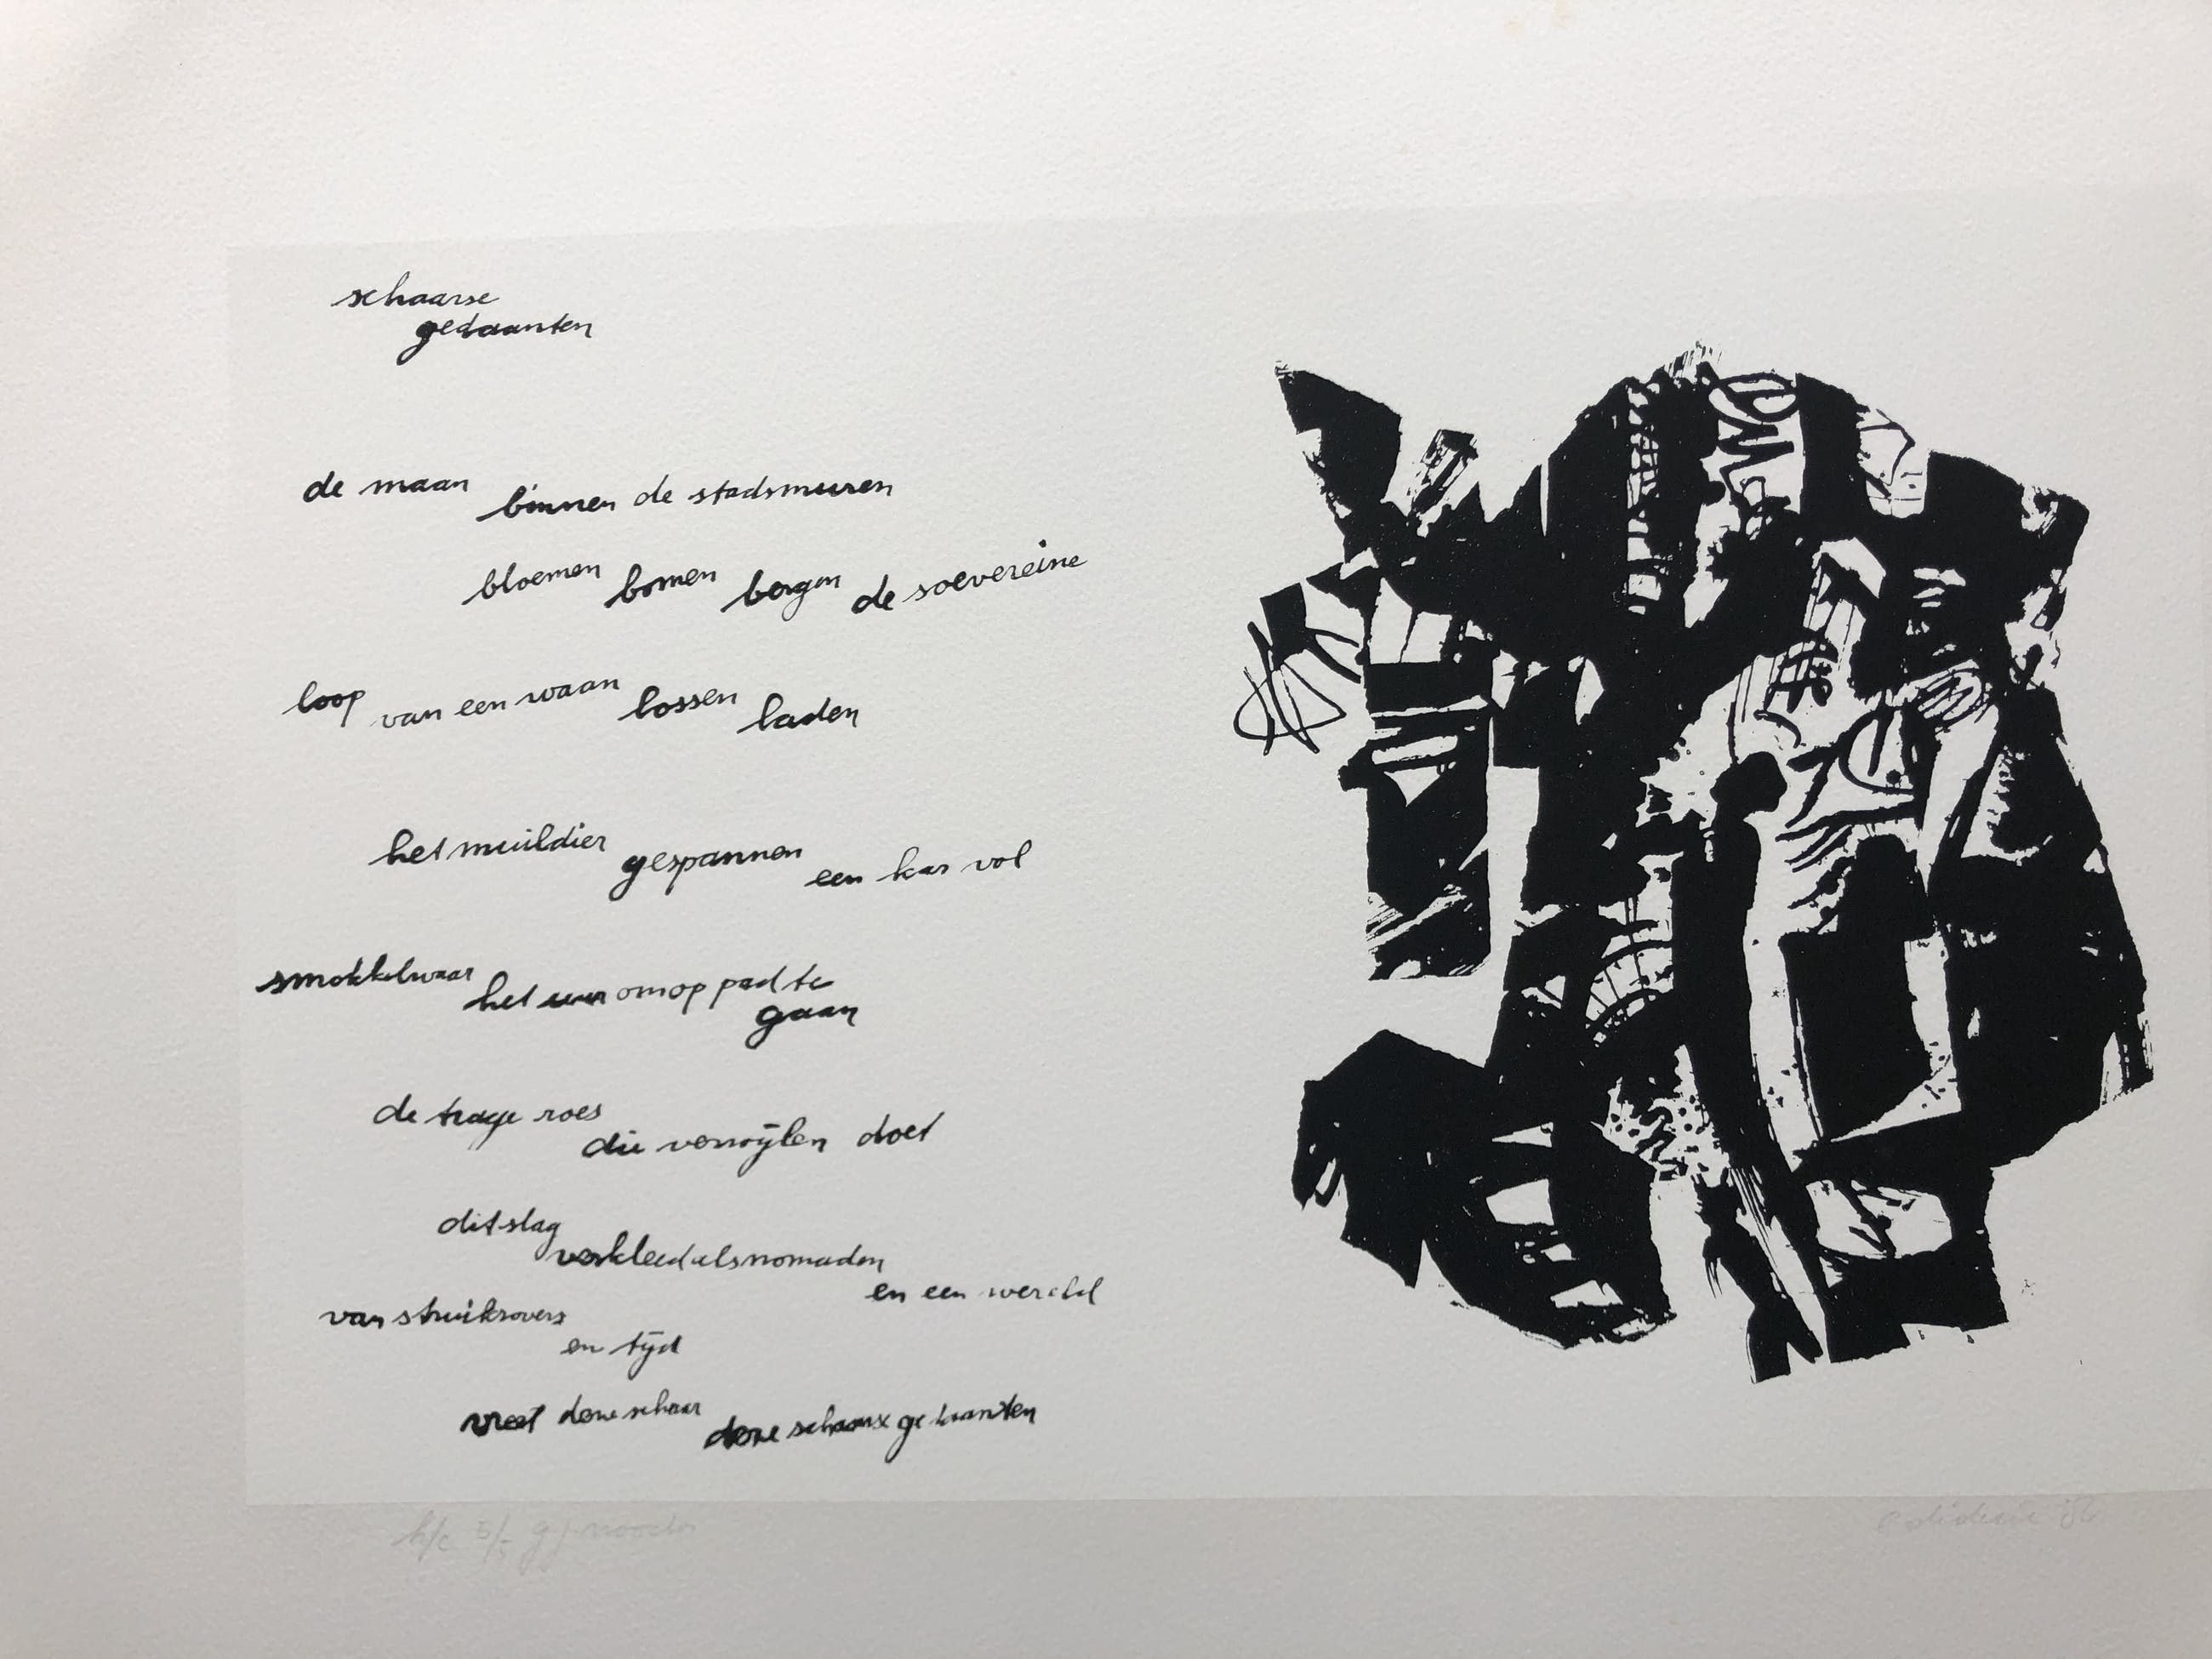 schaarse
gedaanten
de maan binnen de stadsmuren
bloemen bomen bergen de soevereine
loop van een waan lossen laden
het muildier gespannen een kar vol
smokkelwaar het uur om op pad te
gaan
de trage roes
die verwijlen doet
dit slag
verkleed als nomaden
en een wereld
van struikrovers
en tijd
vreet deze schaar deze schaarse gedaanten
h/c 5/5 g j